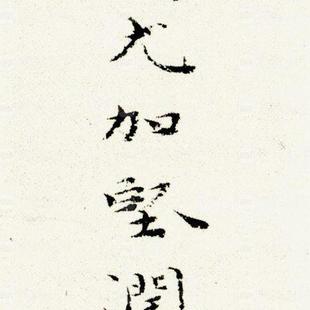 尤加堅潤